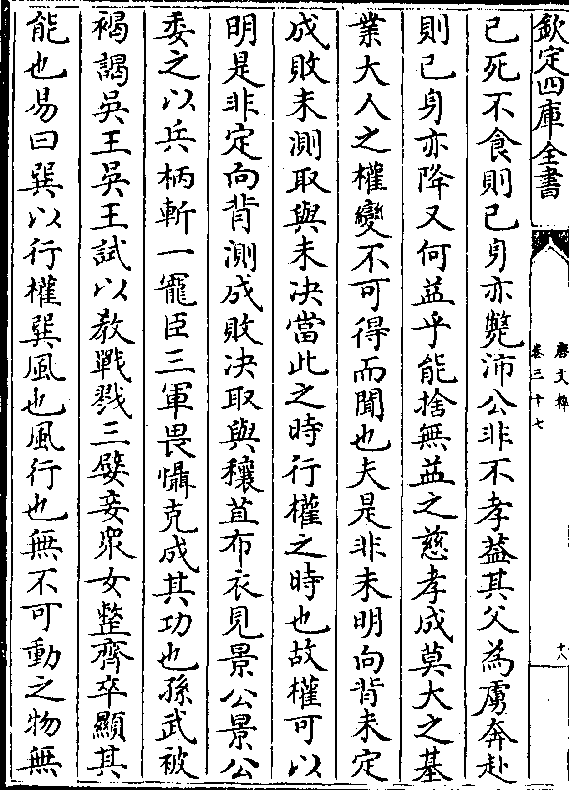 欽定四庫全書
唐文粹
卷三十七
十八
已死不食則已身亦斃沛公非不孝葢其父為虜奔赴
則已身亦降又何益乎能捨無益之慈孝成莫大之基
業大人之權變不可得而聞也夫是非未明向背未定
成敗未測取與未決當此之時行權之時也故權可以
明是非定向背測成敗決取與穰苴布衣見景公景公
委之以兵柄斬一寵臣三軍畏懾克成其功也孫武被
褐謁吳王吳王試以教戰戮三嬖妾衆女整齊卒顯其
能也易曰巽以行權巽風也風行也無不可動之物無